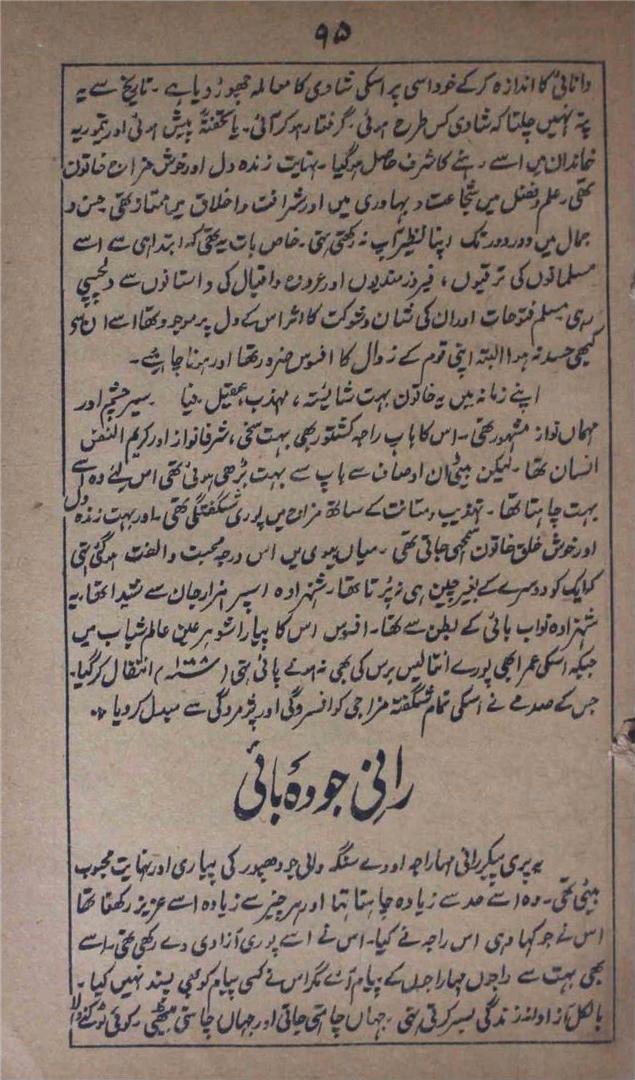 ۹۵
دانائی کا اندازہ کرکے خود اسی پر اسکی شادی کا معاملہ چھوڑ دیا ہے ۔ تاریخ سے یہ
پتہ نہیں چلتا کہ شادی کس طرح ہوئی ۔ گرفتار ہو کر آئی ۔ یا تحفۃً پیش ہوئی اور تیموریہ
خاندان میں اسے رہنے کا شرف حاصل ہوگیا ۔ نہایت زندہ دل اور خوش مزاج خاتون
تھی ۔ علم و فضل میں شجاعت و بہادری میں اور شرافت و اخلاق میں ممتاز تھی حسن و
جمال میں دور دور تک اپنا نظیر آپ نہ رکھتی تھی ۔ خاص بات یہ تھی کہ ابتدا ہی سے اسے
مسلمانوں کی ترقیوں ، فیروزمندیوں اور عروج و اقبال کی داستانوں سے دلچسپی
رہی مسلم فتوحات اور ان کی شان و شوکت کا اثر اس کے دل پر موجود تھا اسے ان سے
کبھی حسد نہ ہوا البتہ اپنی قوم کے زوال کا افسوس ضرور تھا اور ہونا چاہیے ۔
اپنے زمانہ میں یہ خاتون بہت شائستہ ، مہذب ، عقیل ۔ سیر چشم اور
مہماں نواز مشہور تھی ۔ اس کا باپ راجہ کشتور بھی بہت سخی ، شرفا نواز اور کریم النفس
انسان تھا ۔ لیکن بیٹی ان اوصاف سے باپ سے بہت بڑھی ہوئی تھی اس لئے وہ اسے
بہت چاہتا تھا ۔ تہذیب و متانت کے ساتھ مزاج میں پوری شگفتگی تھی ۔ اور بہت زندہ دل
اور خوش خلق خاتون سمجھی جاتی تھی ۔ میاں بیوی میں اس درجہ محبت و الفت ہوگئی تھی
کہ ایک کو دوسرے کے بغیر چین ہی نہ پڑتا تھا ۔ شہزادہ اسپر ہزار جان سے شیدا تھا ، یہ
شہزادہ نواب بائی کے بطن سے تھا ۔ افسوس اس کا پیارا شوہر عین عالم شباب میں
جبکہ اسکی عمر ابھی پورے انتالیس برس کی بھی نہ ہونے پائی تھی (۱۰۸۸ھ) انتقال کرگیا ۔
جس کے صدمے نے اسکی تمام شگفتہ مزاجی کو افسردگی اور پژمردگی سے مبدل کر دیا ۔
رانی جودہ بائی
یہ پری پیکر رانی مہاراجہ اودے سنگھ والی جودھپور کی پیاری اور نہایت محبوب
بیٹی تھی ۔ وہ اسے حد سے زیادہ چاہتا تھا اور ہر چیز سے زیادہ اسے عزیز رکھتا تھا
اس نے جو کہا وہی اس راجہ نے کیا ۔ اس نے اسے پوری آزادی دے رکھی تھی ۔ اسے
بھی بہت سے راجوں مہاراجوں کے پیام آئے مگر اس نے کسی پیام کو بھی پسند نہیں کیا ۔
بالکل آزادانہ زندگی بسر کرتی تھی ۔ جہاں چاہتی جاتی اور جہاں چاہتی بیٹھتی ۔ کوئی ٹوکنے والا